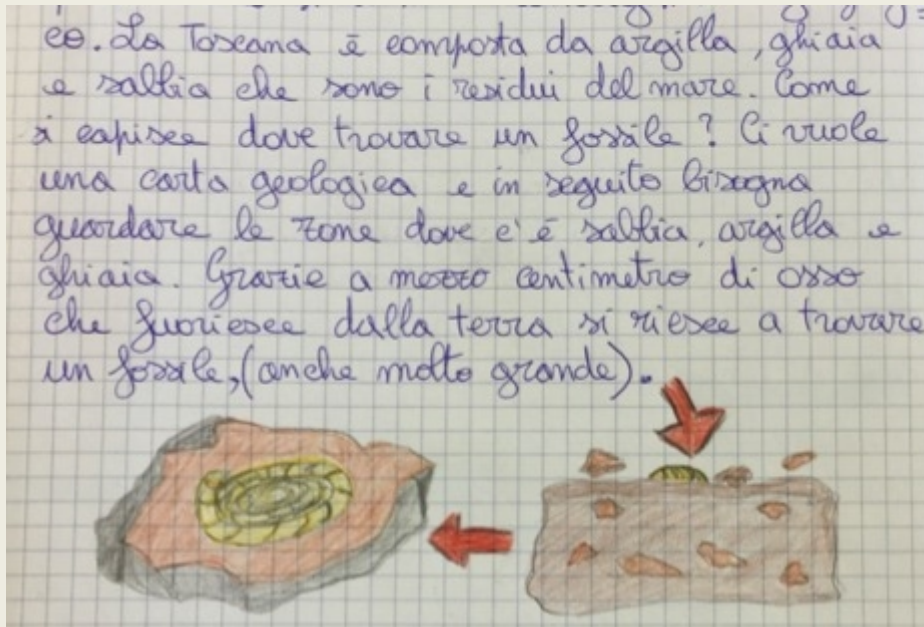 co. La Toscana è composta da argilla, ghiaia
e sabbia che sono i residui del mare. Come
si capisce dove trovare un fossile? Ci vuole
una carta geologica e in seguito bisogna
guardare le zone dove c'è sabbia, argilla e
ghiaia. Grazie a mezzo centimetro di osso
che fuoriesce dalla terra si riesce a trovare
un fossile, (anche molto grande).